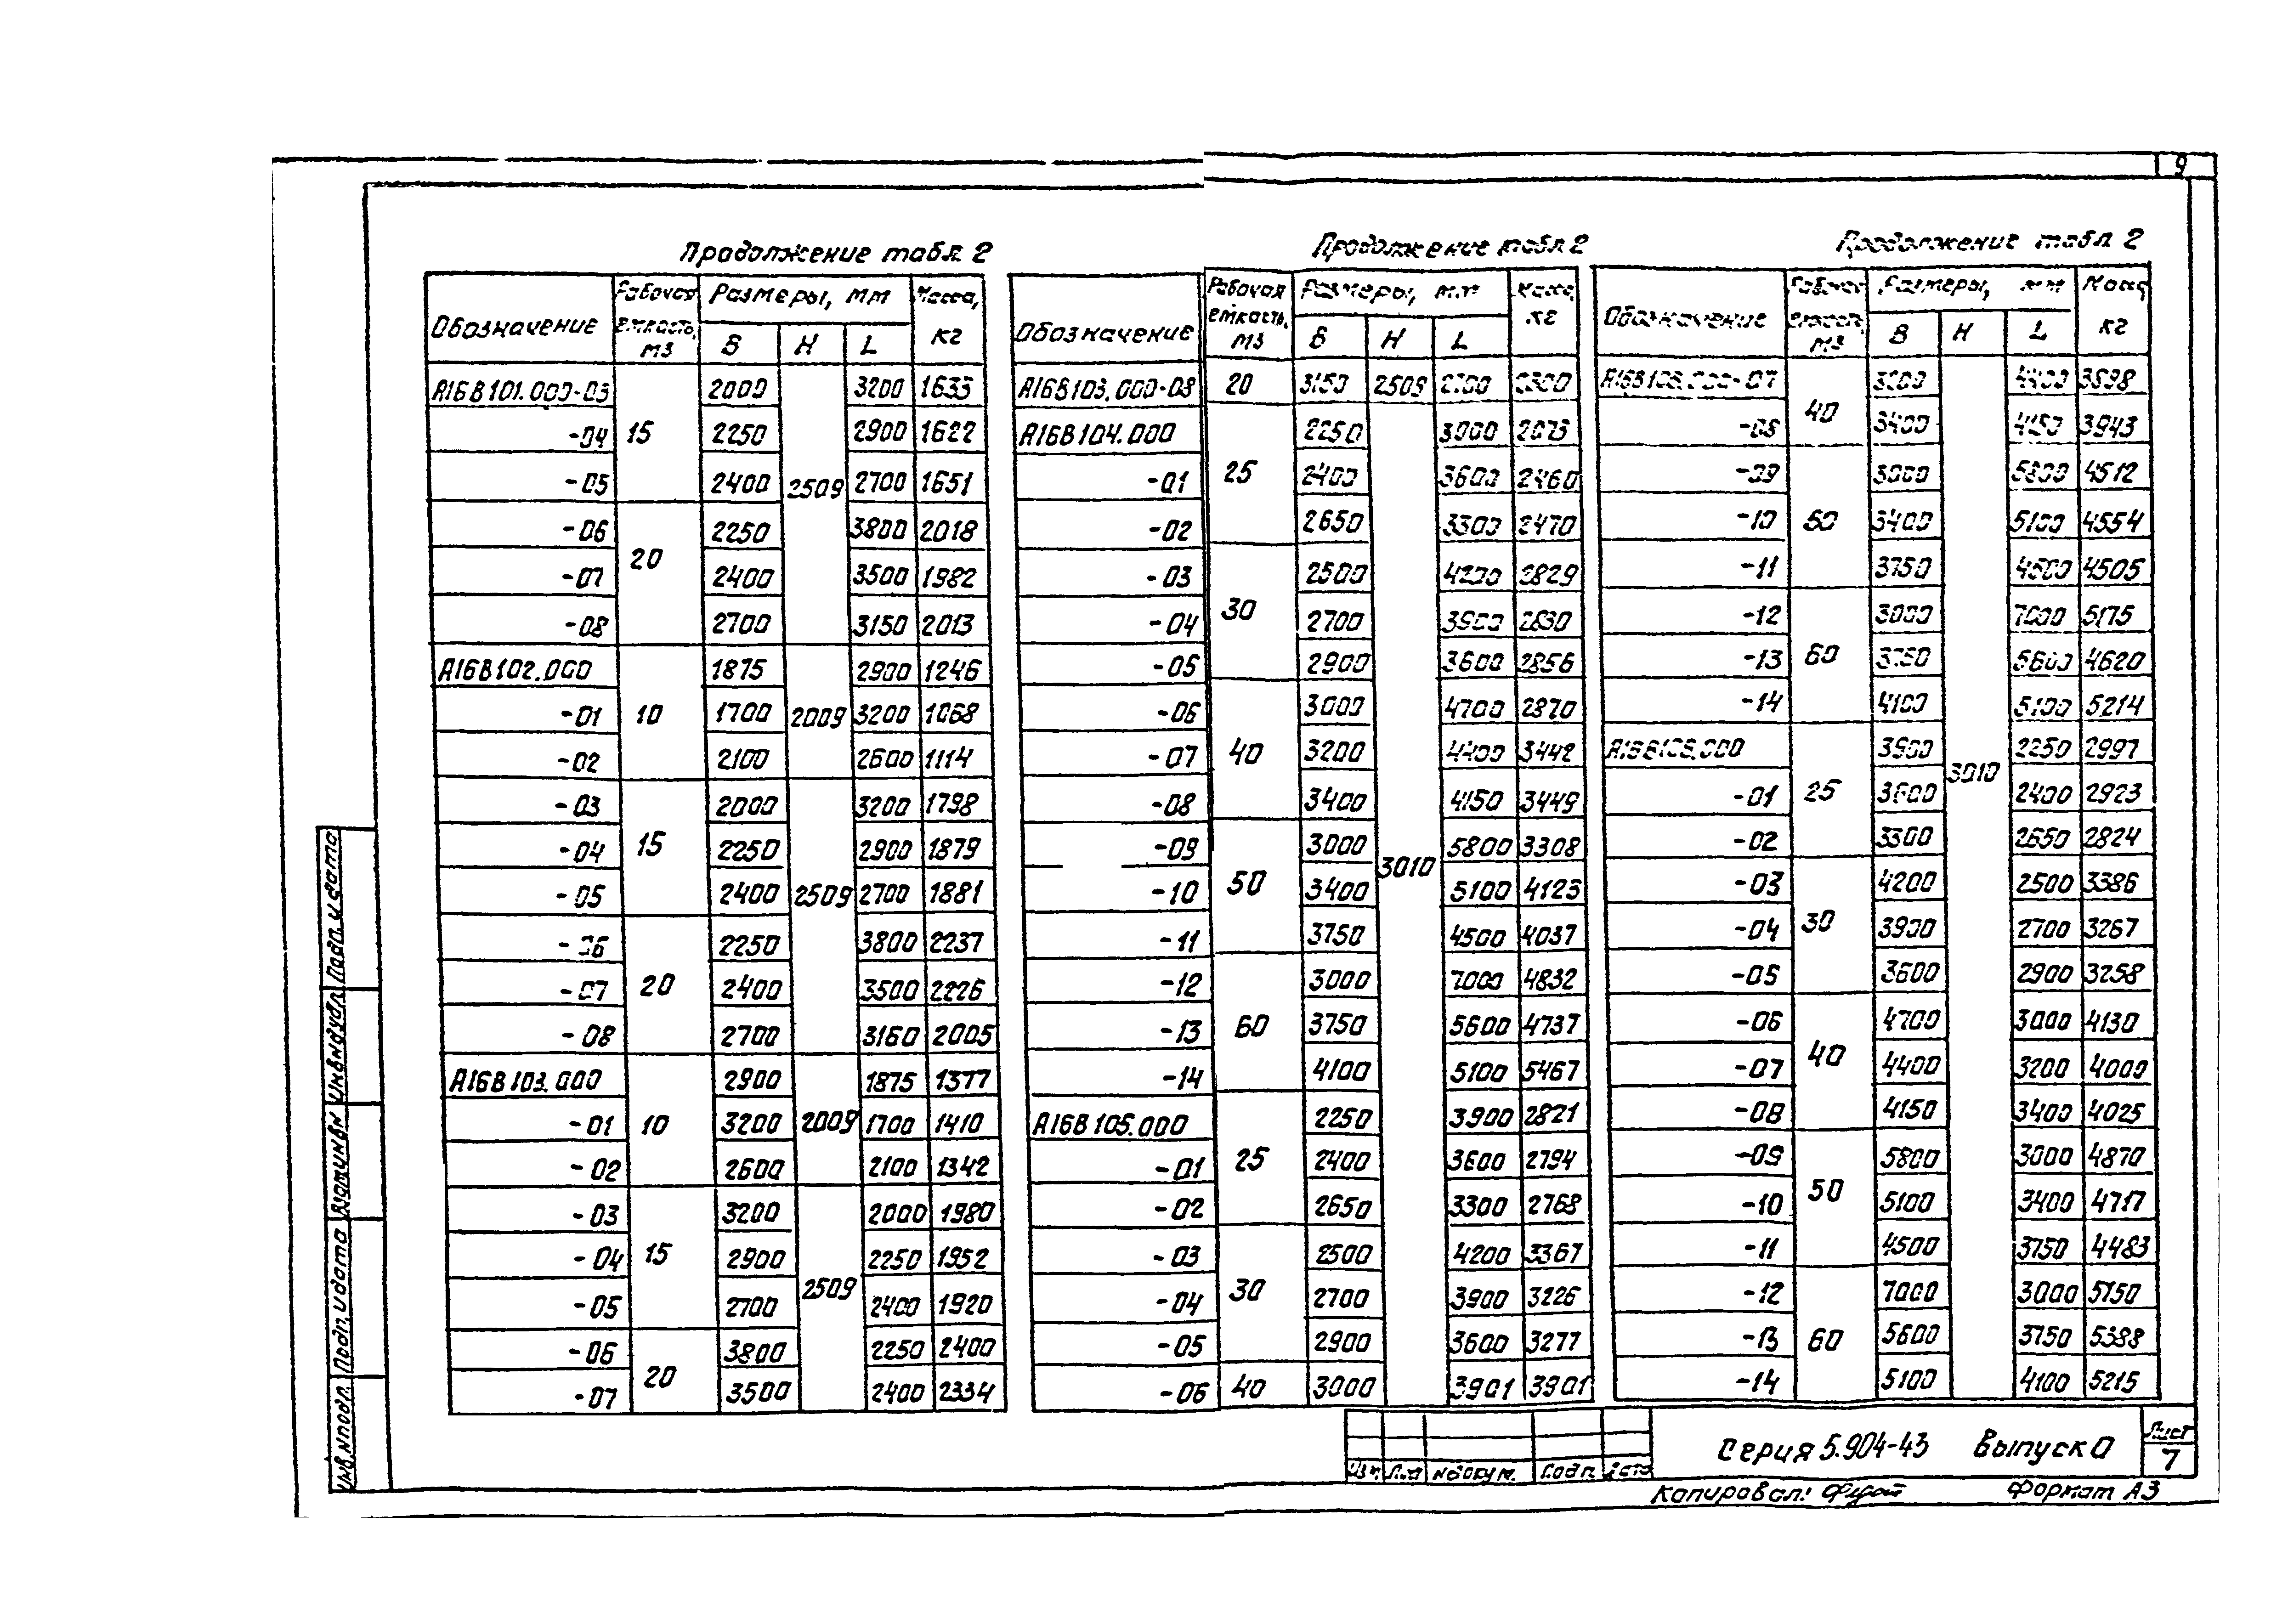 9
Продолжение табл. 2
Обозначение Рабочая емкость, м3 Размеры, мм Масса, кг
В Н L
А16В101.000-03 15 2000 2509 3200 1633
-04 2250 2900 1622
-05 2400 2700 1651
-06 20 2250 3800 2018
-07 2400 3500 1982
-08 2700 3150 2013
А16В102.000 10 1875 2009 2900 1246
-01 1700 3200 1068
-02 2100 2600 1114
-03 15 2000 2509 3200 1798
-04 2250 2900 1879
-05 2400 2700 1881
-06 20 2250 3800 2237
-07 2400 3500 2226
-08 2700 3160 2005
А16В103.000 10 2900 2009 1875 1377
-01 3200 1700 1410
-02 2600 2100 1342
-03 15 3200 2509 2000 1980
-04 2900 2250 1952
-05 2700 2400 1920
-06 20 3800 2250 2400
-07 3500 2400 2334
Продолжение табл 2
Обозначение Рабочая емкость, м3 Размеры, мм Масса, кг
В Н L
А16В103.000-08 20 3150 2509
А16В104.000 25 2250 3010 3000
-01 2400 3600 2460
-02 2650 3300 2470
-03 30 2500 4200 2829
-04 2700 3900 2830
-05 2900 3600 2856
-06 40 3000 4700 2870
-07 3200 4400 3442
-08 3400 4150 3449
-09 50 3000 5800 3308
-10 3400 5100 4123
-11 3750 4500 4037
-12 60 3000 7000 4832
-13 3750 5600 4737
-14 4100 5100 5467
А16В105.000 25 2250 3900 2821
-01 2400 3600 2794
-02 2650 3300 2768
-03 30 2500 4200 3367
-04 2700 3900 3226
-05 2900 3600 3277
-06 40 3000 3901 3901
Продолжение табл 2
Обозначение Рабочая емкость, м3 Размеры, мм Масса, кг
В Н L
-07 40 3200 3010 4400 3898
-08 3400 4150 3943
-09 50 3000 5800 4512
-10 3400 5100 4554
-11 3750 4500 4505
-12 60 3000 7000 5175
-13 3750 5600 4620
-14 4100 5100 5214
А16В106.000 25 3900 2250 2997
-01 3600 2400 2923
-02 3300 2650 2824
-03 30 4200 2500 3386
-04 3900 2700 3267
-05 3600 2900 3258
-06 40 4700 3000 4130
-07 4400 3200 4000
-08 4150 3400 4025
-09 50 5800 3000 4870
-10 5100 3400 4717
-11 4500 3750 4483
-12 60 7000 3000 5750
-13 5600 3750 5388
-14 5100 4100 5215
Подп. и дата
Инв.№дубл.
Взам.инв.№
Подп. и дата
Инв.№подл.
Изм. Лист №докум. Подп. Дата
Серия 5.904-43 Выпуск 0
Лист
7
Копировал:
Формат А3